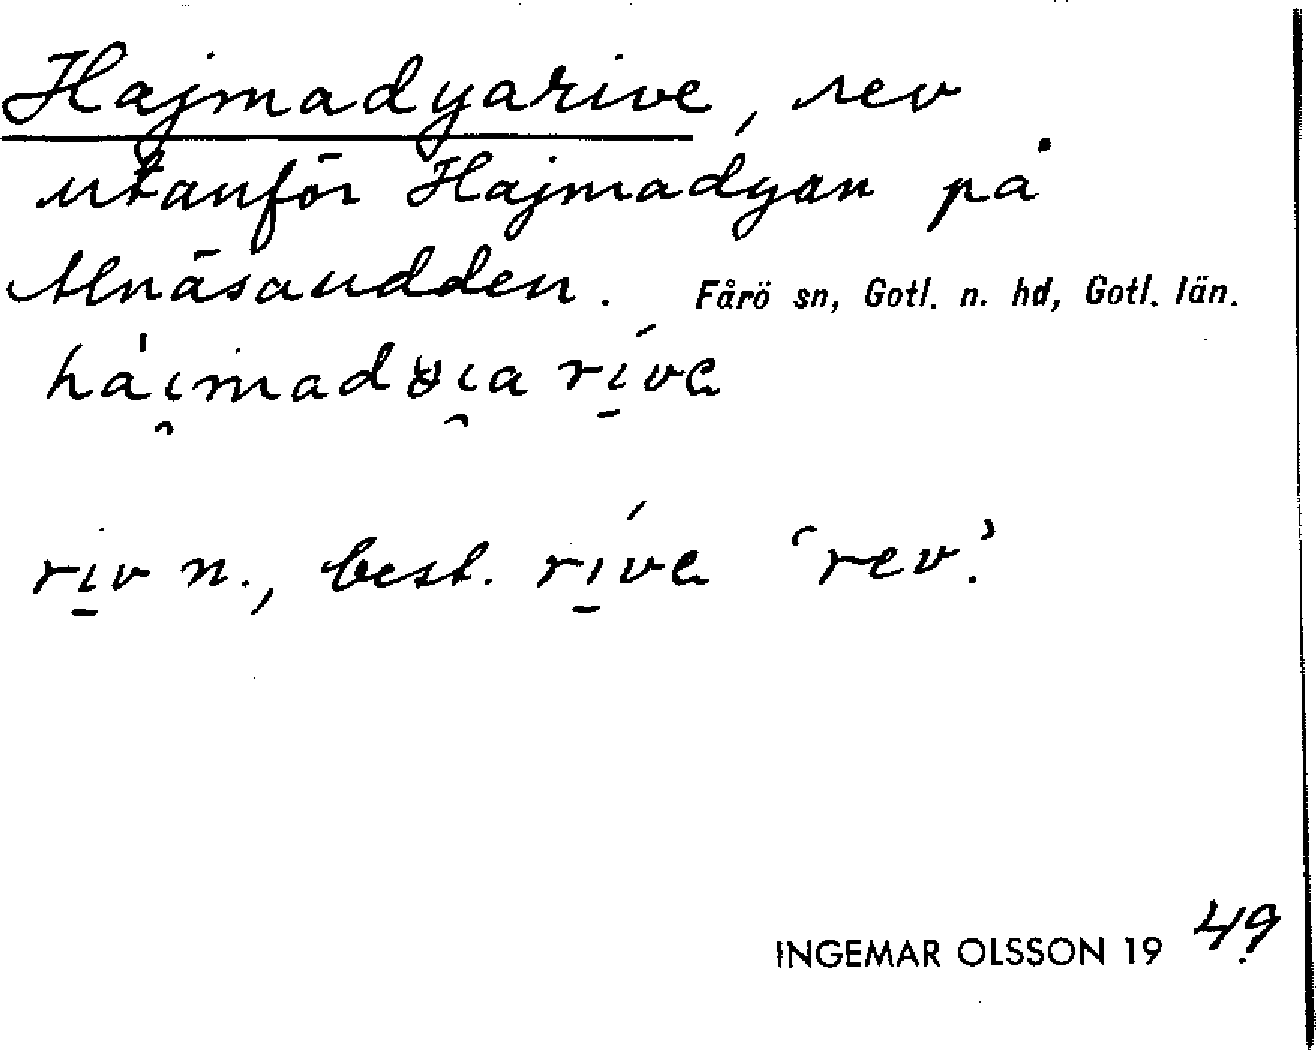 Hajmadyarive, rev
utanför Hajmadyan på
Alnäsaudden. Fårö sn, Gotl. n. hd, Gotl. län.
rı̱v n., best. rı̱́vɐ 'rev'.
INGEMAR OLSSON 1949.